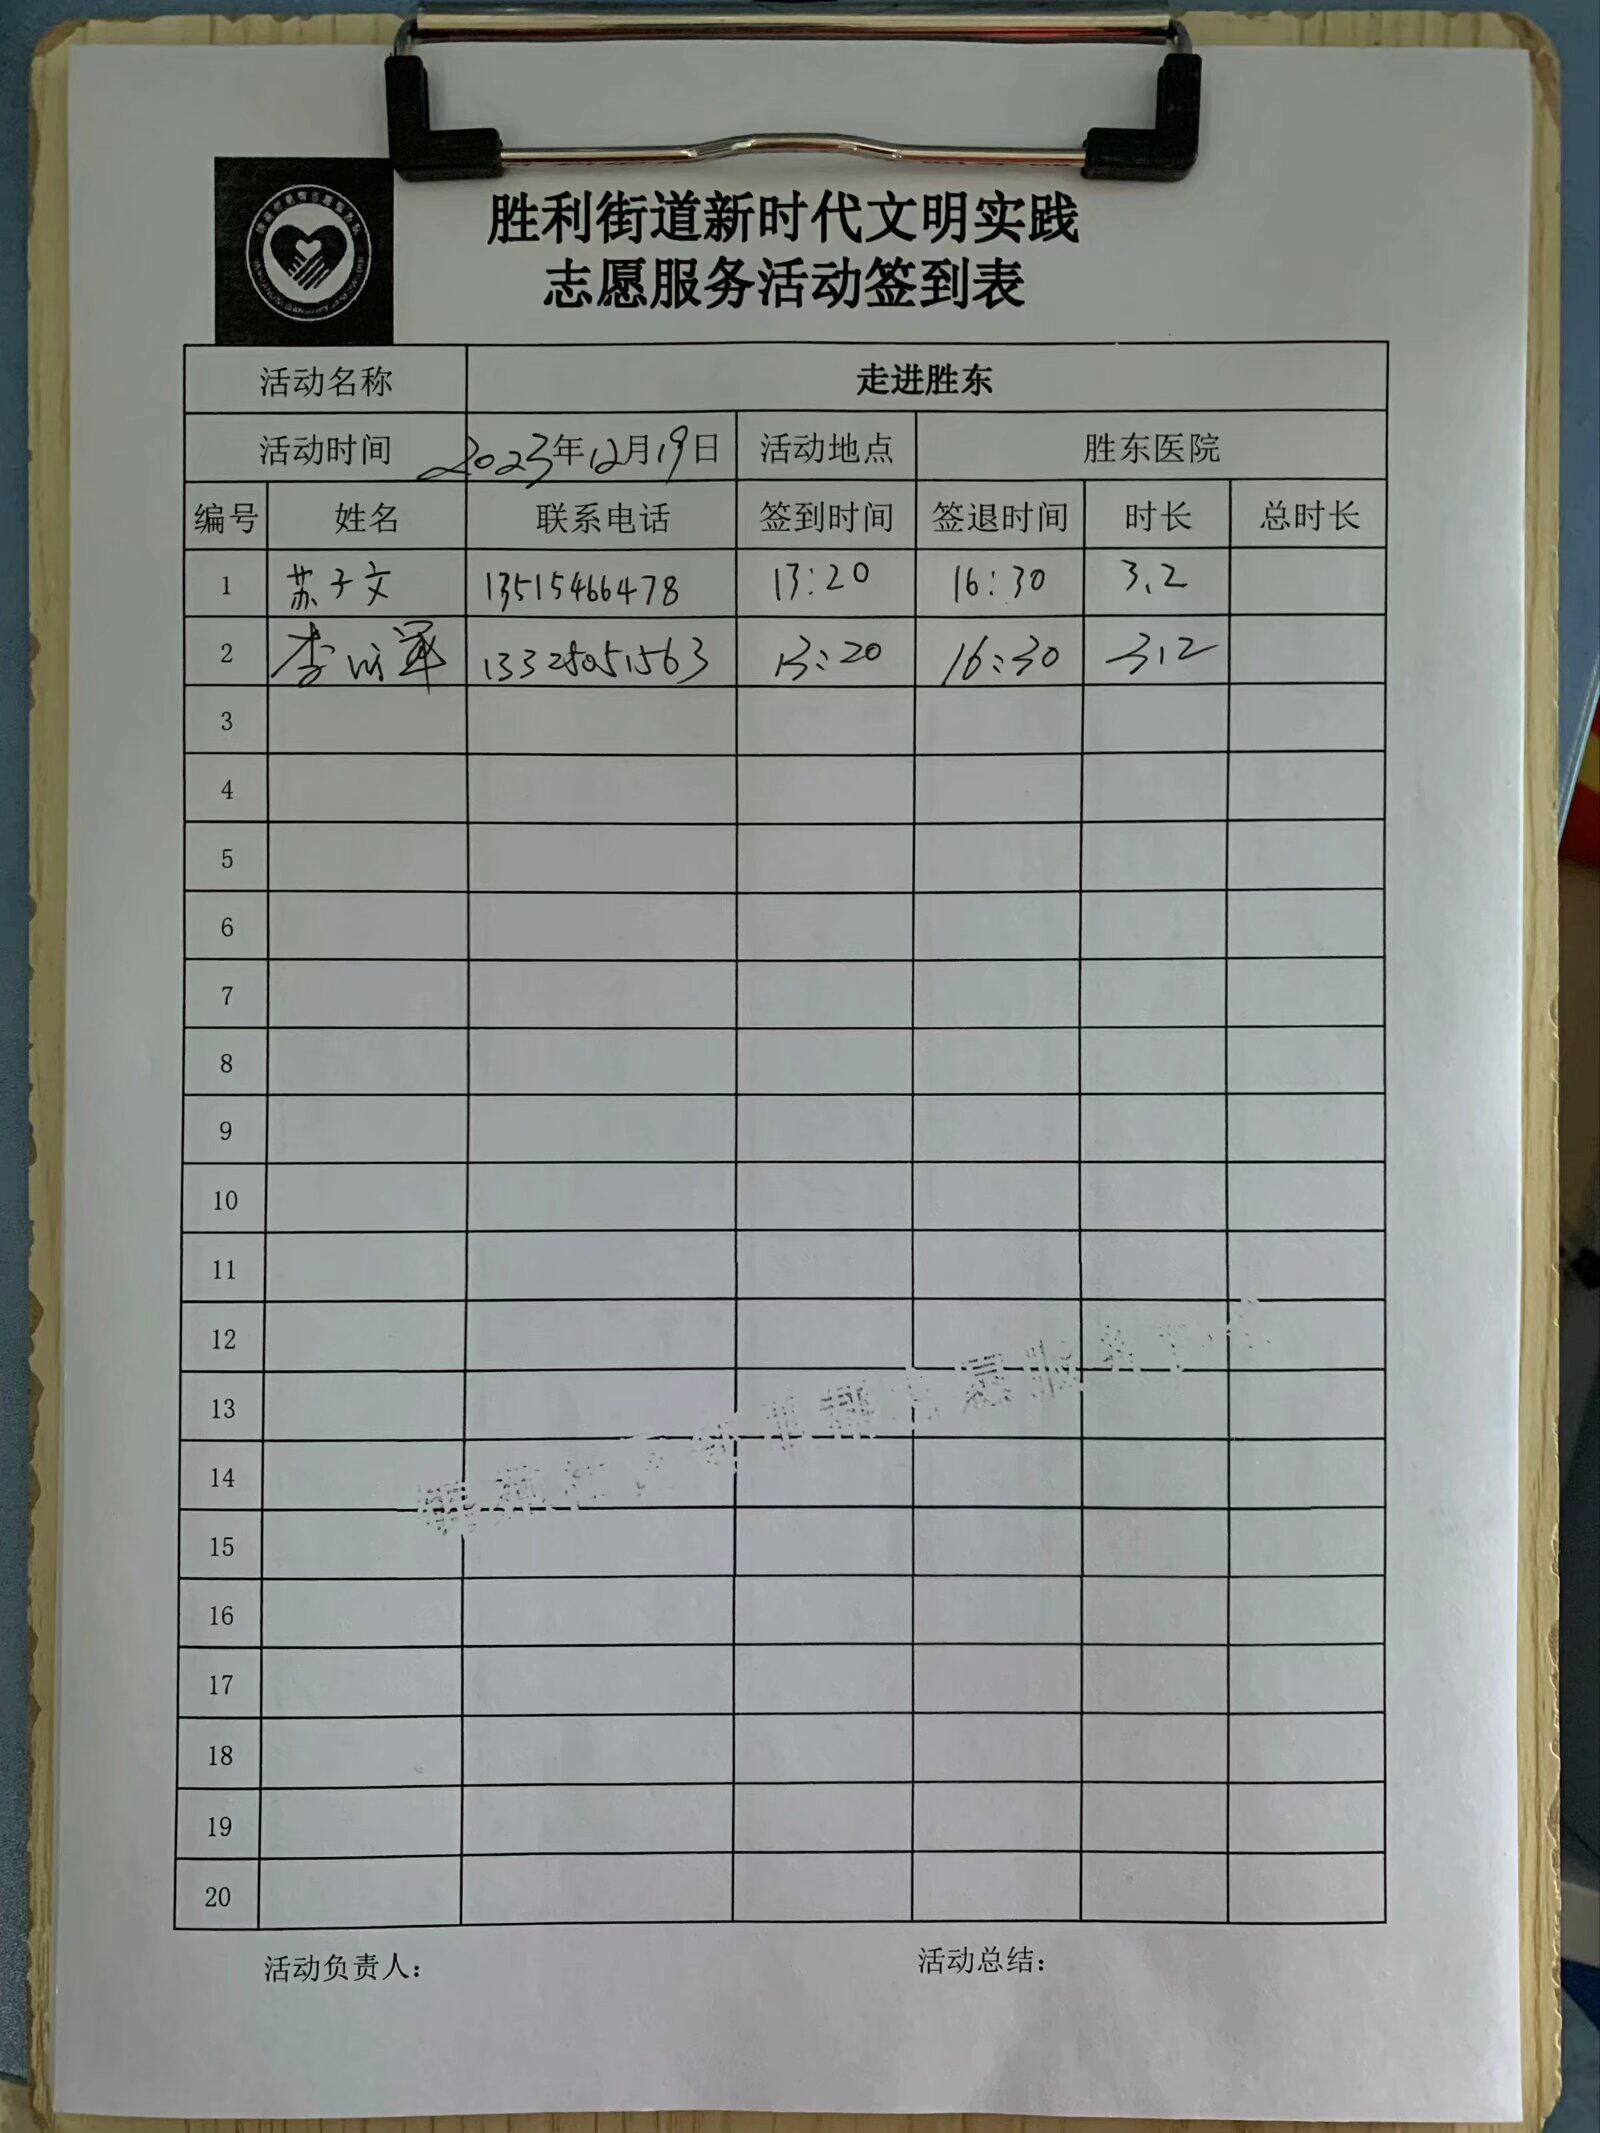 胜利街道新时代文明实践
志愿服务活动签到表
活动名称 走进胜东
活动时间 2023年12月19日 活动地点 胜东医院
编号 姓名 联系电话 签到时间 签退时间 时长 总时长
1 苏子文 13515466478 13:20 16:30 3.2
2 李 军 13325051563 13:20 16:30 3.2
3
4
5
6
7
8
9
10
11
12
13
14
15
16
17
18
19
20
活动负责人: 活动总结: